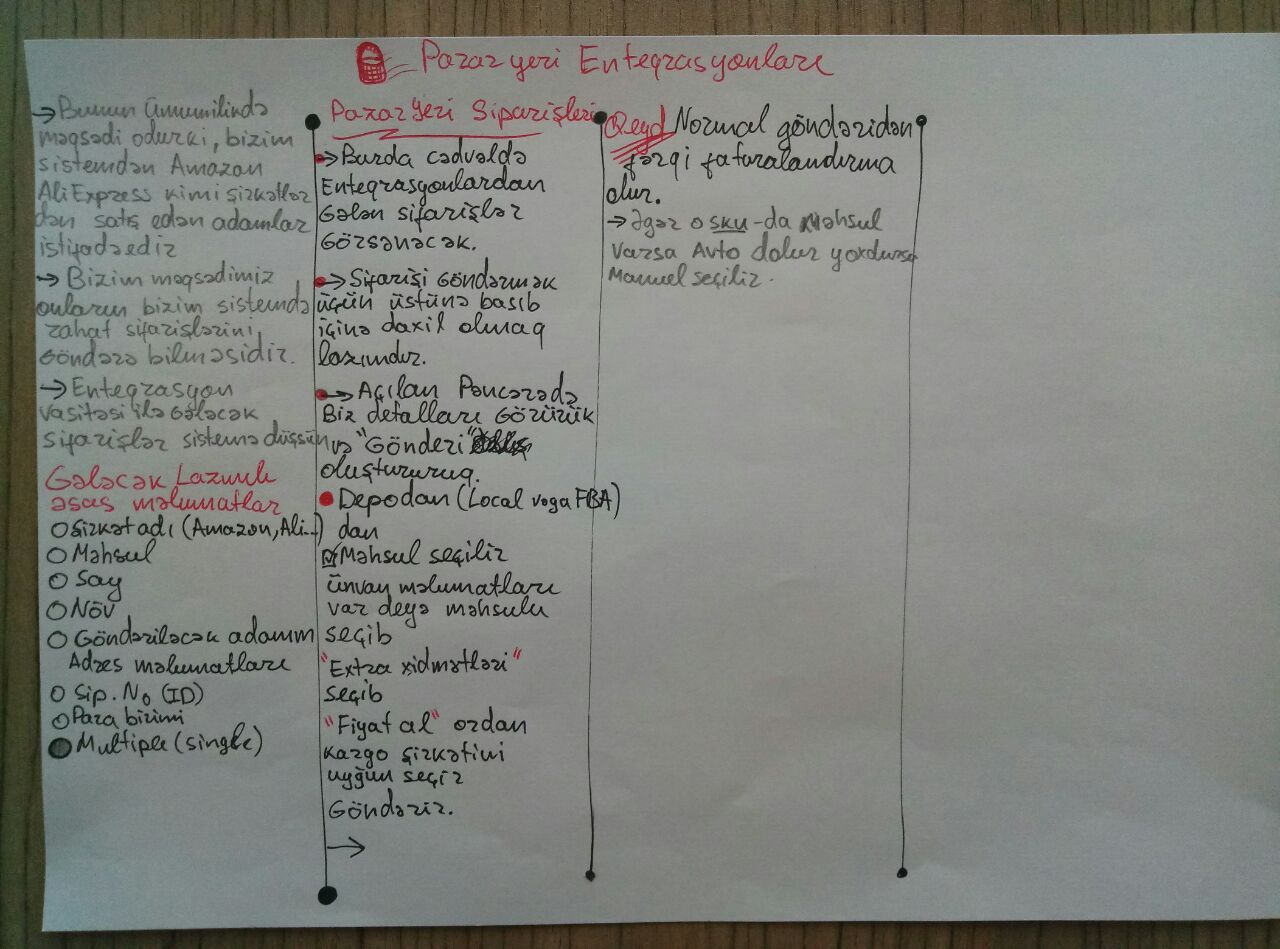 Pazaryeri Enteqrasyonları
→ Bunun ümumilikdə
məqsədi odurki, bizim
sistemdən Amazon
AliExpress kimi şirkətlər
dən satış edən adamlar
istifadə edir
→ Bizim məqsədimiz
onların bizim sistemdə
rahat sifarişlərini
Göndərə bilməsidir.
→ Enteqrasyon
vasitəsi ilə Gələcək
sifarişlər sistemə düşsün
Gələcək Lazımlı
əsas məlumatlar
○ Şirkət adı (Amazon, Ali...)
○ Məhsul
○ Say
○ Növ
○ Göndəriləcək adamın
Adres məlumatları
○ Sip. No (ID)
○ Para birimi
● Multiple (single)
Pazar Yeri Siparişleri
→ Burda cədvəldə
Enteqrasyonlardan
Gələn sifarişlər
Görsənəcək.
→ Sifarişi Göndərmək
üçün üstünə basıb
içinə daxil olmaq
lazımdır.
→ Açılan Pəncərədə
Biz detalları Görürük
və "Gönderi"
oluştururuq.
● Depodan (Local vəya FBA)
dan
☑ Məhsul seçilir
ünvan məlumatları
var deyə məhsulu
seçib
"Extra xidmətləri"
seçib
"Fiyat al" ordan
kargo şirkətini
uyğun seçir
Göndərir.
→
Qeyd Normal göndəridən
fərqi faturalandırma
olur.
→ Əgər o SKU-da Məhsul
Varsa Avto dolur yoxdursa
Manuel seçilir.